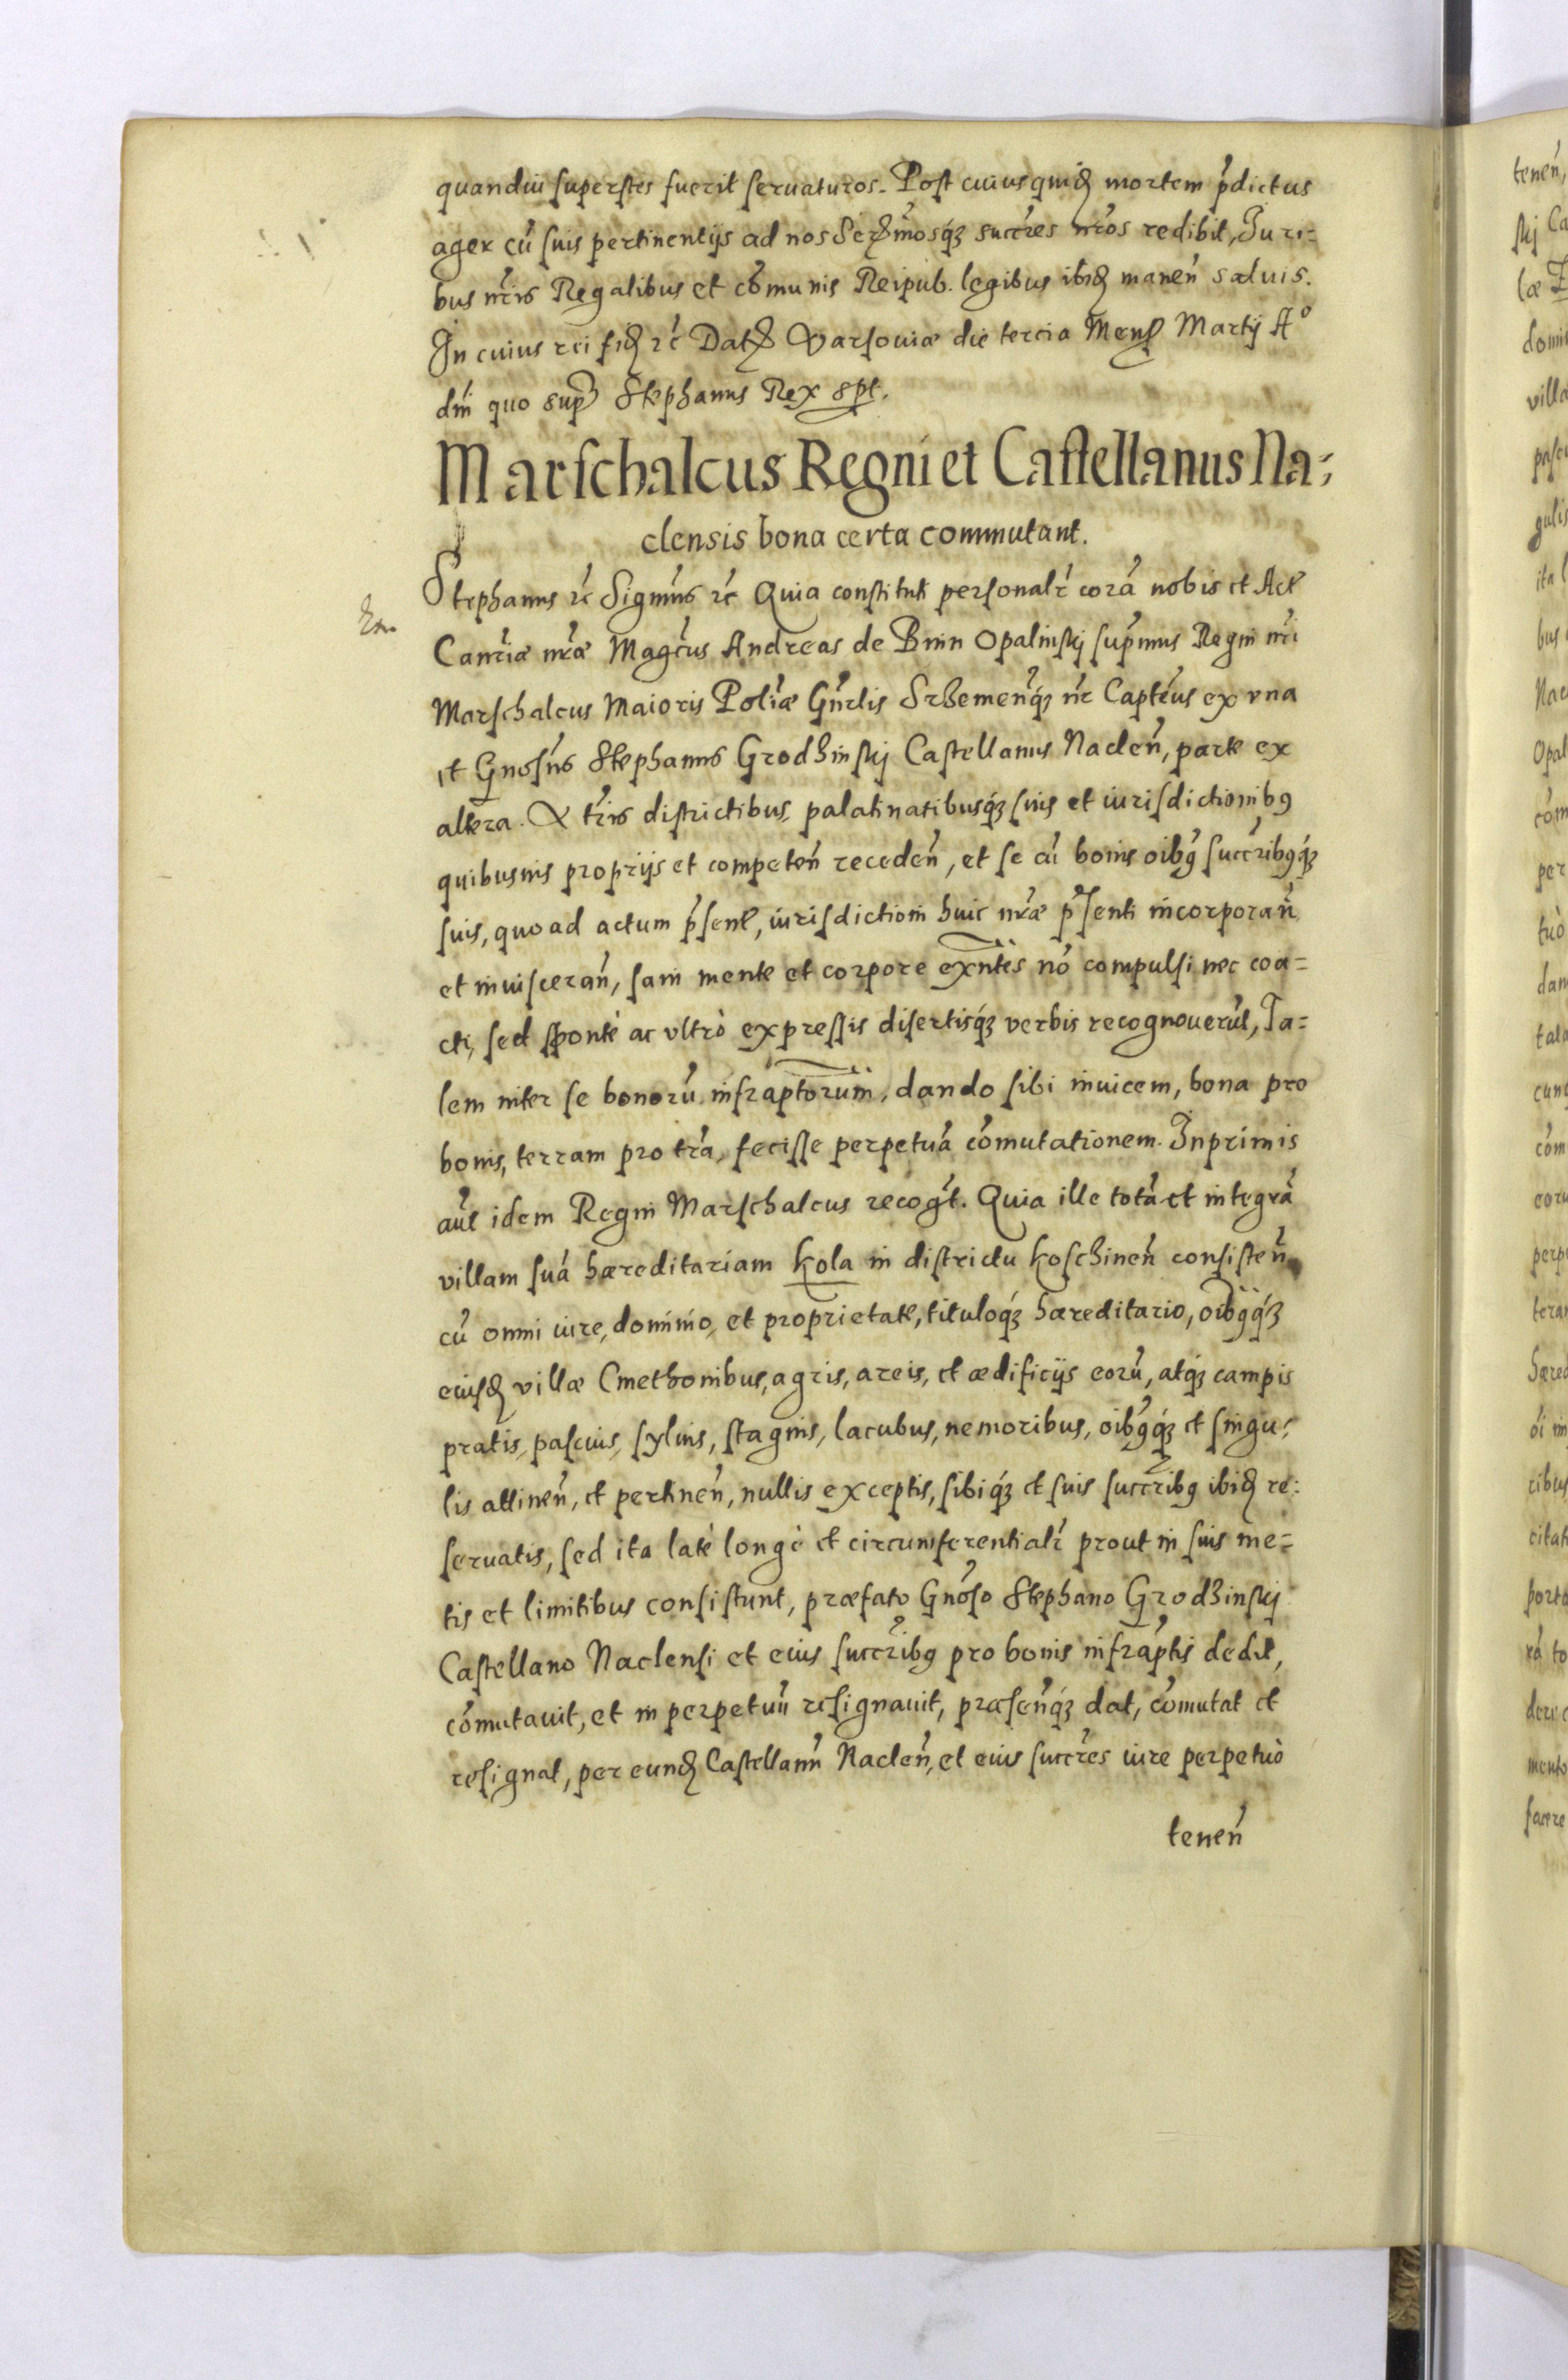 quandiu superstes fuerit seruaturos. Post cuiusquidẽ mortem p̃dictus
ager cũ suis pertinentijs ad nos Serẽmosq́ꝫ succr̃es nr̃os redibit, Juri=
bus nr̃is Regalibus et cõmunis Reipub. legibus ibidẽ maneñ saluis.
In cuius rei fidẽ rc̃ Datẽ Varsouiæ die tercia Mens̃ Martij A°
dñi quo sup̃ Stephanus Rex spt.
Marschalcus Regni et Castellanus Na=
clensis bona certa commutant.
Stephanus rc̃ Signm̃s rc̃ Quia constituti personalr̃ corã nobis et Act̃
Canr̃iæ nr̃æ Magc̃us Andreas de Bnin Opalinskj sup̃mus Regni nr̃i
Marschalcus Maioris Polr̃iæ Gñrlis Srhemenq̃́ꝫ nr̃ Capt̃eus ex vna
et Gnosũs Stephanus Grodhinskj Castellanus Naclen̄, parte ex
altera. A tr̃is districtibus, palatinatibusq́ꝫ suis et iurisdictionibꝯ
quibusuis proprijs et competeñ recedeñ, et se ac̃ bonis oĩbꝯ succr̃ibꝯq́ꝫ
suis, quoad actum p̃sent̃, iurisdictioni huic nr̃æ p̃senti incorporañ,
et inuisceran̄, sani mente et corpore exñtes nõ compulsi nec coa=
cti, sed spontè ac vltrò expressis disertisq́ꝫ verbis recognouerũt, Ta=
lem inter se bonorũ infraptorum̃, dando sibi inuicem, bona pro
bonis, terram pro tr̃a, fecisse perpetuã cõmutationem. Inprimis
aũt idem Regni Marschalcus recog̃t. Quia ille totã et integrã
villam suã hæreditariam Kola in districtu Koschinen̄ consisteñ
cũ omni iure, dominio, et proprietate, tituloq́ꝫ hæreditario, oĩbꝯq́ꝫ
eiusdẽ villæ Cmethonibus, agris, areis, et ædificijs eorũ, atq́ꝫ campis
pratis, pascuis, syluis, stagnis, lacubus, nemoribus, oĩbꝯq́ꝫ et singu=
lis attineñ, et pertineñ, nullis exceptis, sibiq́ꝫ et suis succr̃ibꝯ ibidẽ re=
seruatis, sed ita latè longè et circumferentialr̃ prout in suis me=
tis et limitibus consistunt, præfato Gnõso Stephano Grodhinskj
Castellano Naclensi et eius succr̃ibꝯ pro bonis infrap̃tis dedit,
cõmutauit, et in perpetuũ resignauit, præsenq̃́ꝫ dat, cõmutat et
resignat, per eundẽ Castellanũ Naclen̄, et eius succr̃es iure perpetuò
teneñ